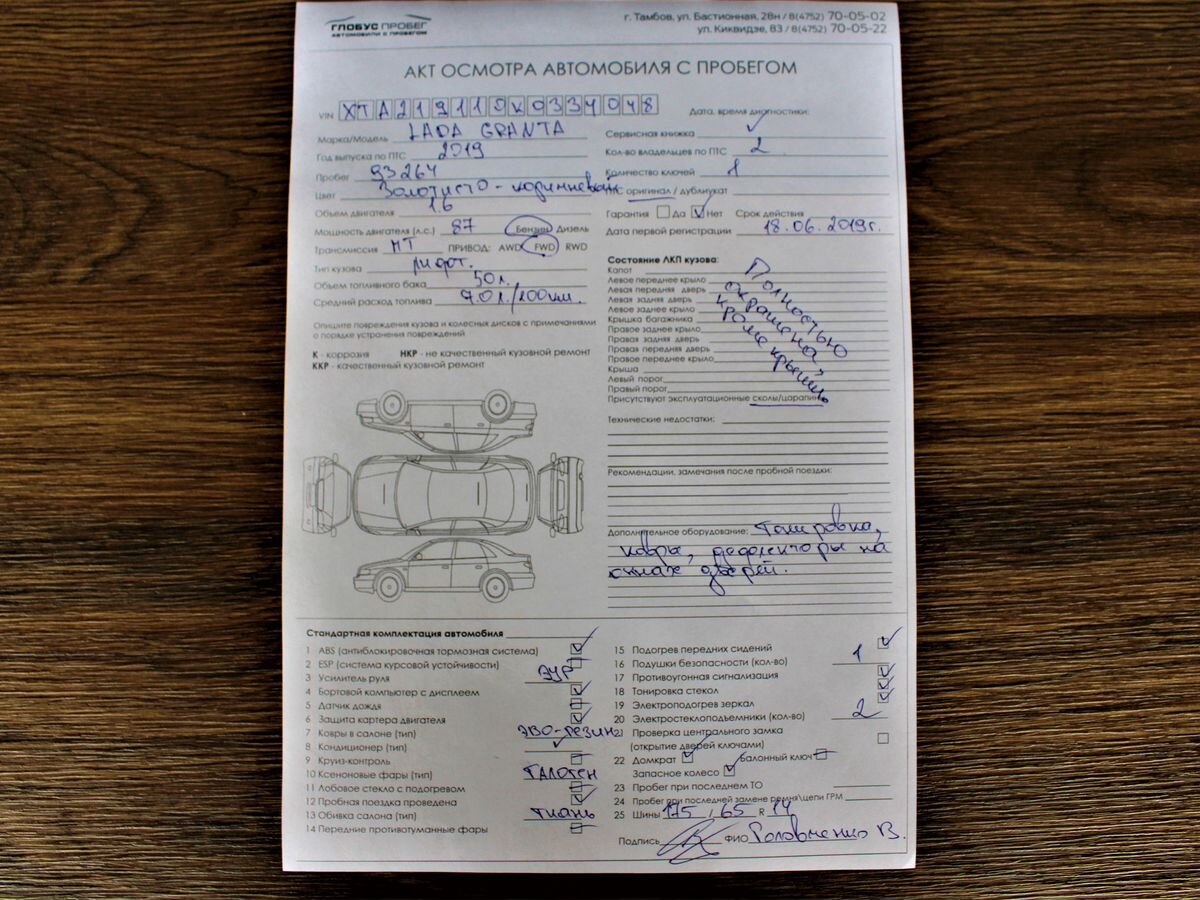 ГЛОБУС ПРОБЕГ
АВТОМОБИЛИ С ПРОБЕГОМ
г. Тамбов, ул. Бастионная, 28н / 8(4752) 70-05-02
ул. Киквидзе, 83 / 8(4752) 70-05-22
АКТ ОСМОТРА АВТОМОБИЛЯ С ПРОБЕГОМ
VIN XTA219110K0334048
Марка/Модель LADA GRANTA
Год выпуска по ПТС 2019
Пробег 93264
Цвет Золотисто-коричневый
Объем двигателя 1.6
Мощность двигателя (л.с.) 87 Бензин Дизель
Трансмиссия МТ ПРИВОД: AWD FWD RWD
Тип кузова лифт.
Объем топливного бака 50 л.
Средний расход топлива 7.0 л./100км.
Опишите повреждения кузова и колесных дисков с примечаниями
о порядке устранения повреждений
К - коррозия НКР - не качественный кузовной ремонт
ККР - качественный кузовной ремонт
Дата, время диагностики:
Сервисная книжка
Кол-во владельцев по ПТС 2
Количество ключей 1
ПТС оригинал / дубликат
Гарантия Да Нет Срок действия
Дата первой регистрации 18.06.2019г.
Состояние ЛКП кузова:
Капот
Левое переднее крыло
Левая передняя дверь
Левая задняя дверь
Левое заднее крыло
Крышка багажника
Правое заднее крыло
Правая задняя дверь
Правая передняя дверь
Правое переднее крыло
Крыша
Левый порог
Правый порог
Полностью
окрашена,
кроме крыши
Присутствуют эксплуатационные сколы/царапины
Технические недостатки:
Рекомендации, замечания после пробной поездки:
Дополнительное оборудование: Тонировка,
ковры, дефлекторы на
окнах дверей.
Стандартная комплектация автомобиля
1 ABS (антиблокировочная тормозная система)
2 ESP (система курсовой устойчивости)
3 Усилитель руля ЭУР
4 Бортовой компьютер с дисплеем
5 Датчик дождя
6 Защита картера двигателя
7 Ковры в салоне (тип) ЭВО-резин
8 Кондиционер (тип)
9 Круиз-контроль
10 Ксеноновые фары (тип) ГАЛОГЕН
11 Лобовое стекло с подогревом
12 Пробная поездка проведена
13 Обивка салона (тип) ТКАНЬ
14 Передние противотуманные фары
15 Подогрев передних сидений
16 Подушки безопасности (кол-во) 1
17 Противоугонная сигнализация
18 Тонировка стекол
19 Электроподогрев зеркал
20 Электростеклоподъемники (кол-во) 2
21 Проверка центрального замка
(открытие дверей ключами)
22 Домкрат Балонный ключ
Запасное колесо
23 Пробег при последнем ТО
24 Пробег при последней замене ремня\цепи ГРМ
25 Шины 175 / 65 R 14
Подпись ФИО Головченко В.